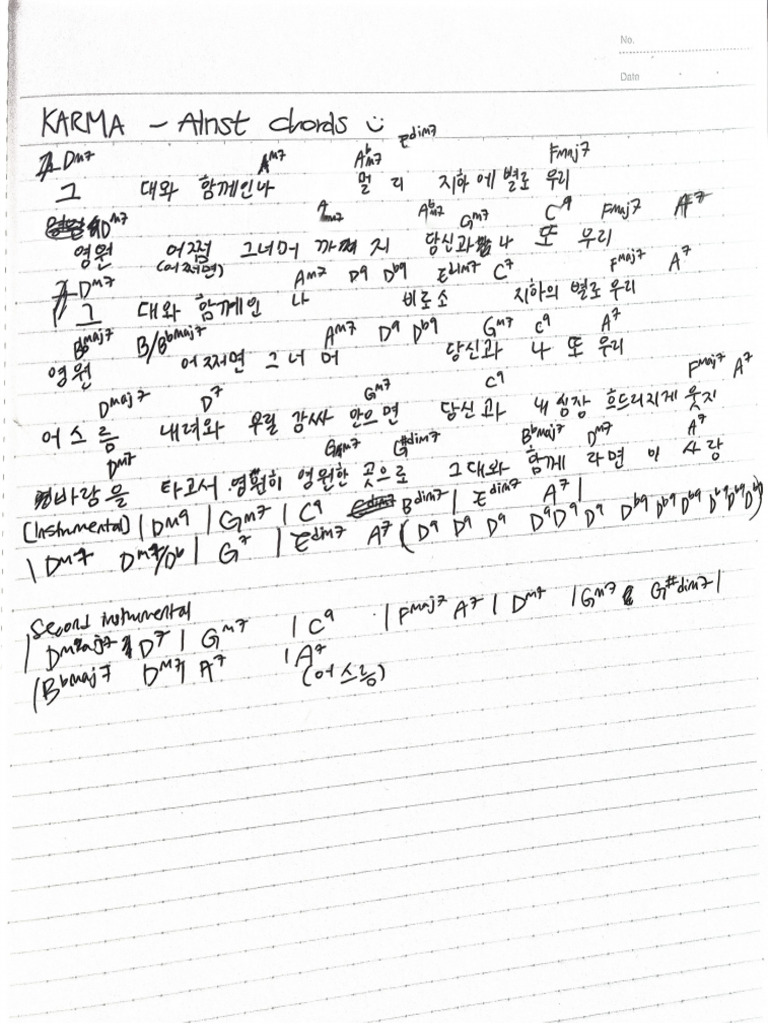 No.
Date
KARMA - AInst chords
Dm7 Am7 Abm7 Edim7 Fmaj7
그 대와 함께인나 멀 리 지하에 별로 우리
Dm7 Am7 Abm7 Gm7 C9 Fmaj7 A7
영원 어쩜 그너머 까지 당신과 나 또 우리
(어쩌면)
Dm7 Am7 D9 Db9 Edim7 C7 Fmaj7 A7
그 대와 함께인 나 비로소 지하의 별로 우리
Bbmaj7 B/Bbmaj7 Am7 D9 Db9 Gm7 C9 A7
영원 어쩌면 그 너 머 당신과 나 또 우리
Dmaj7 D7 Gm7 C9 Fmaj7 A7
어스름 내려와 우릴 감싸 안으면 당신과 내 심장 흐드러지게 웃지
Dm7 Gm7 G#dim7 Bbmaj7 Dm7 A7
바람을 타고서 영원히 영원한 곳으로 그대와 함께 라면 이 사랑
(Instrumental) | Dm9 | Gm7 | C9 Bdim7 | Edim7 A7 |
| Dm7 Dm7/Db | G7 | Edim7 A7 (D9 D9 D9 D9 D9 D9 Db9 Db9 Db9 Db9 Db9 Db9)
Second instrumental
| Dmaj7 D7 | Gm7 | C9 | Fmaj7 A7 | Dm7 | Gm7 G#dim7 |
| Bbmaj7 Dm7 | A7 | A7
(어스름)